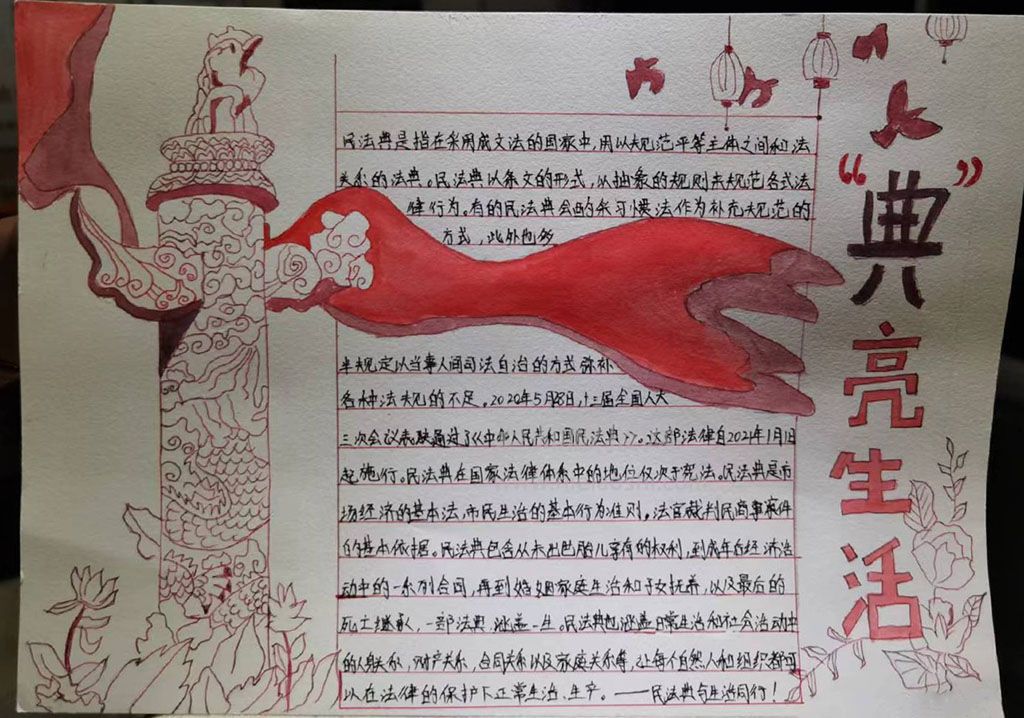 “典”亮生活
民法典是指在采用成文法的国家中,用以规范平等主体之间私法
关系的法典。民法典以条文的形式,以抽象的规则来规范各式法
律行为。有的民法典会酌采习惯法作为补充规范的
方式,此外也多
半规定以当事人间司法自治的方式弥补
各种法规的不足。2020年5月28日,十三届全国人大
三次会议表决通过了《中华人民共和国民法典》。这部法律自2021年1月1日
起施行。民法典在国家法律体系中的地位仅次于宪法。民法典是市
场经济的基本法,市民生活的基本行为准则,法官裁判民商事案件
的基本依据。民法典包含从未出生胎儿享有的权利,到成年后经济活
动中的一系列合同,再到婚姻家庭生活和子女抚养,以及最后的
死亡继承,一部法典涵盖一生。民法典也涵盖日常生活和社会活动中
的人身关系,财产关系,合同关系以及家庭关系等,让每个自然人和组织都可
以在法律的保护下正常生活、生产。——民法典与生活同行!